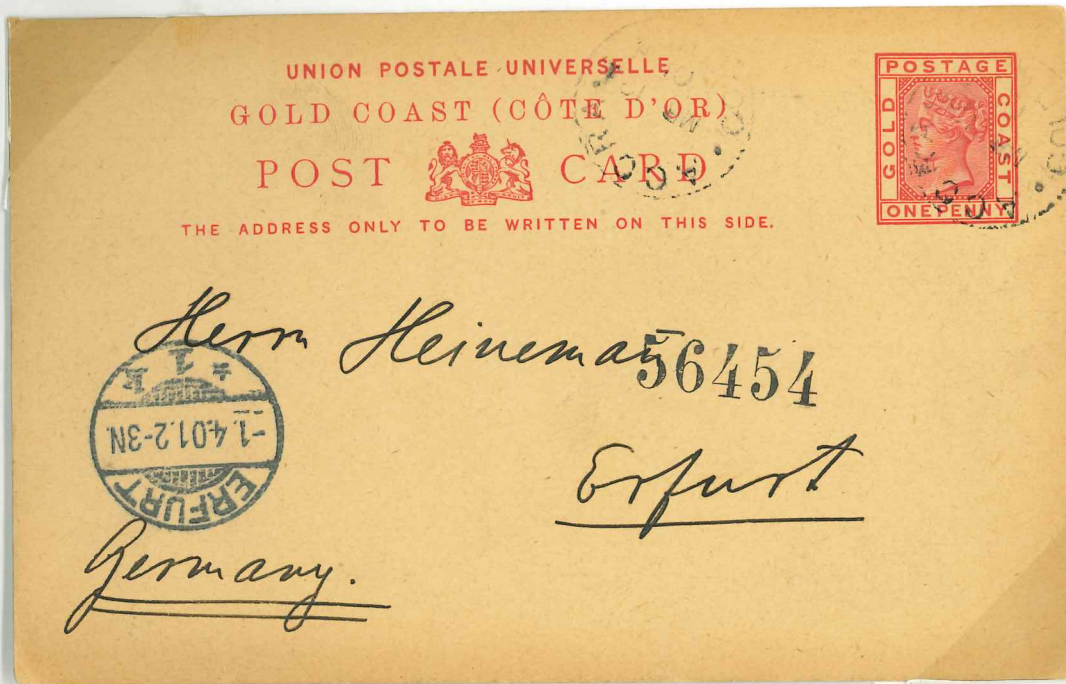 UNION POSTALE UNIVERSELLE
GOLD COAST (CÔTE D'OR)
POST CARD
THE ADDRESS ONLY TO BE WRITTEN ON THIS SIDE.
POSTAGE
GOLD
COAST
ONE PENNY
ACCRA
ACCRA
Herrn Heineman
56454
Erfurt
Germany.
ERFURT
-1.4.01.2-3N.
* 1 k